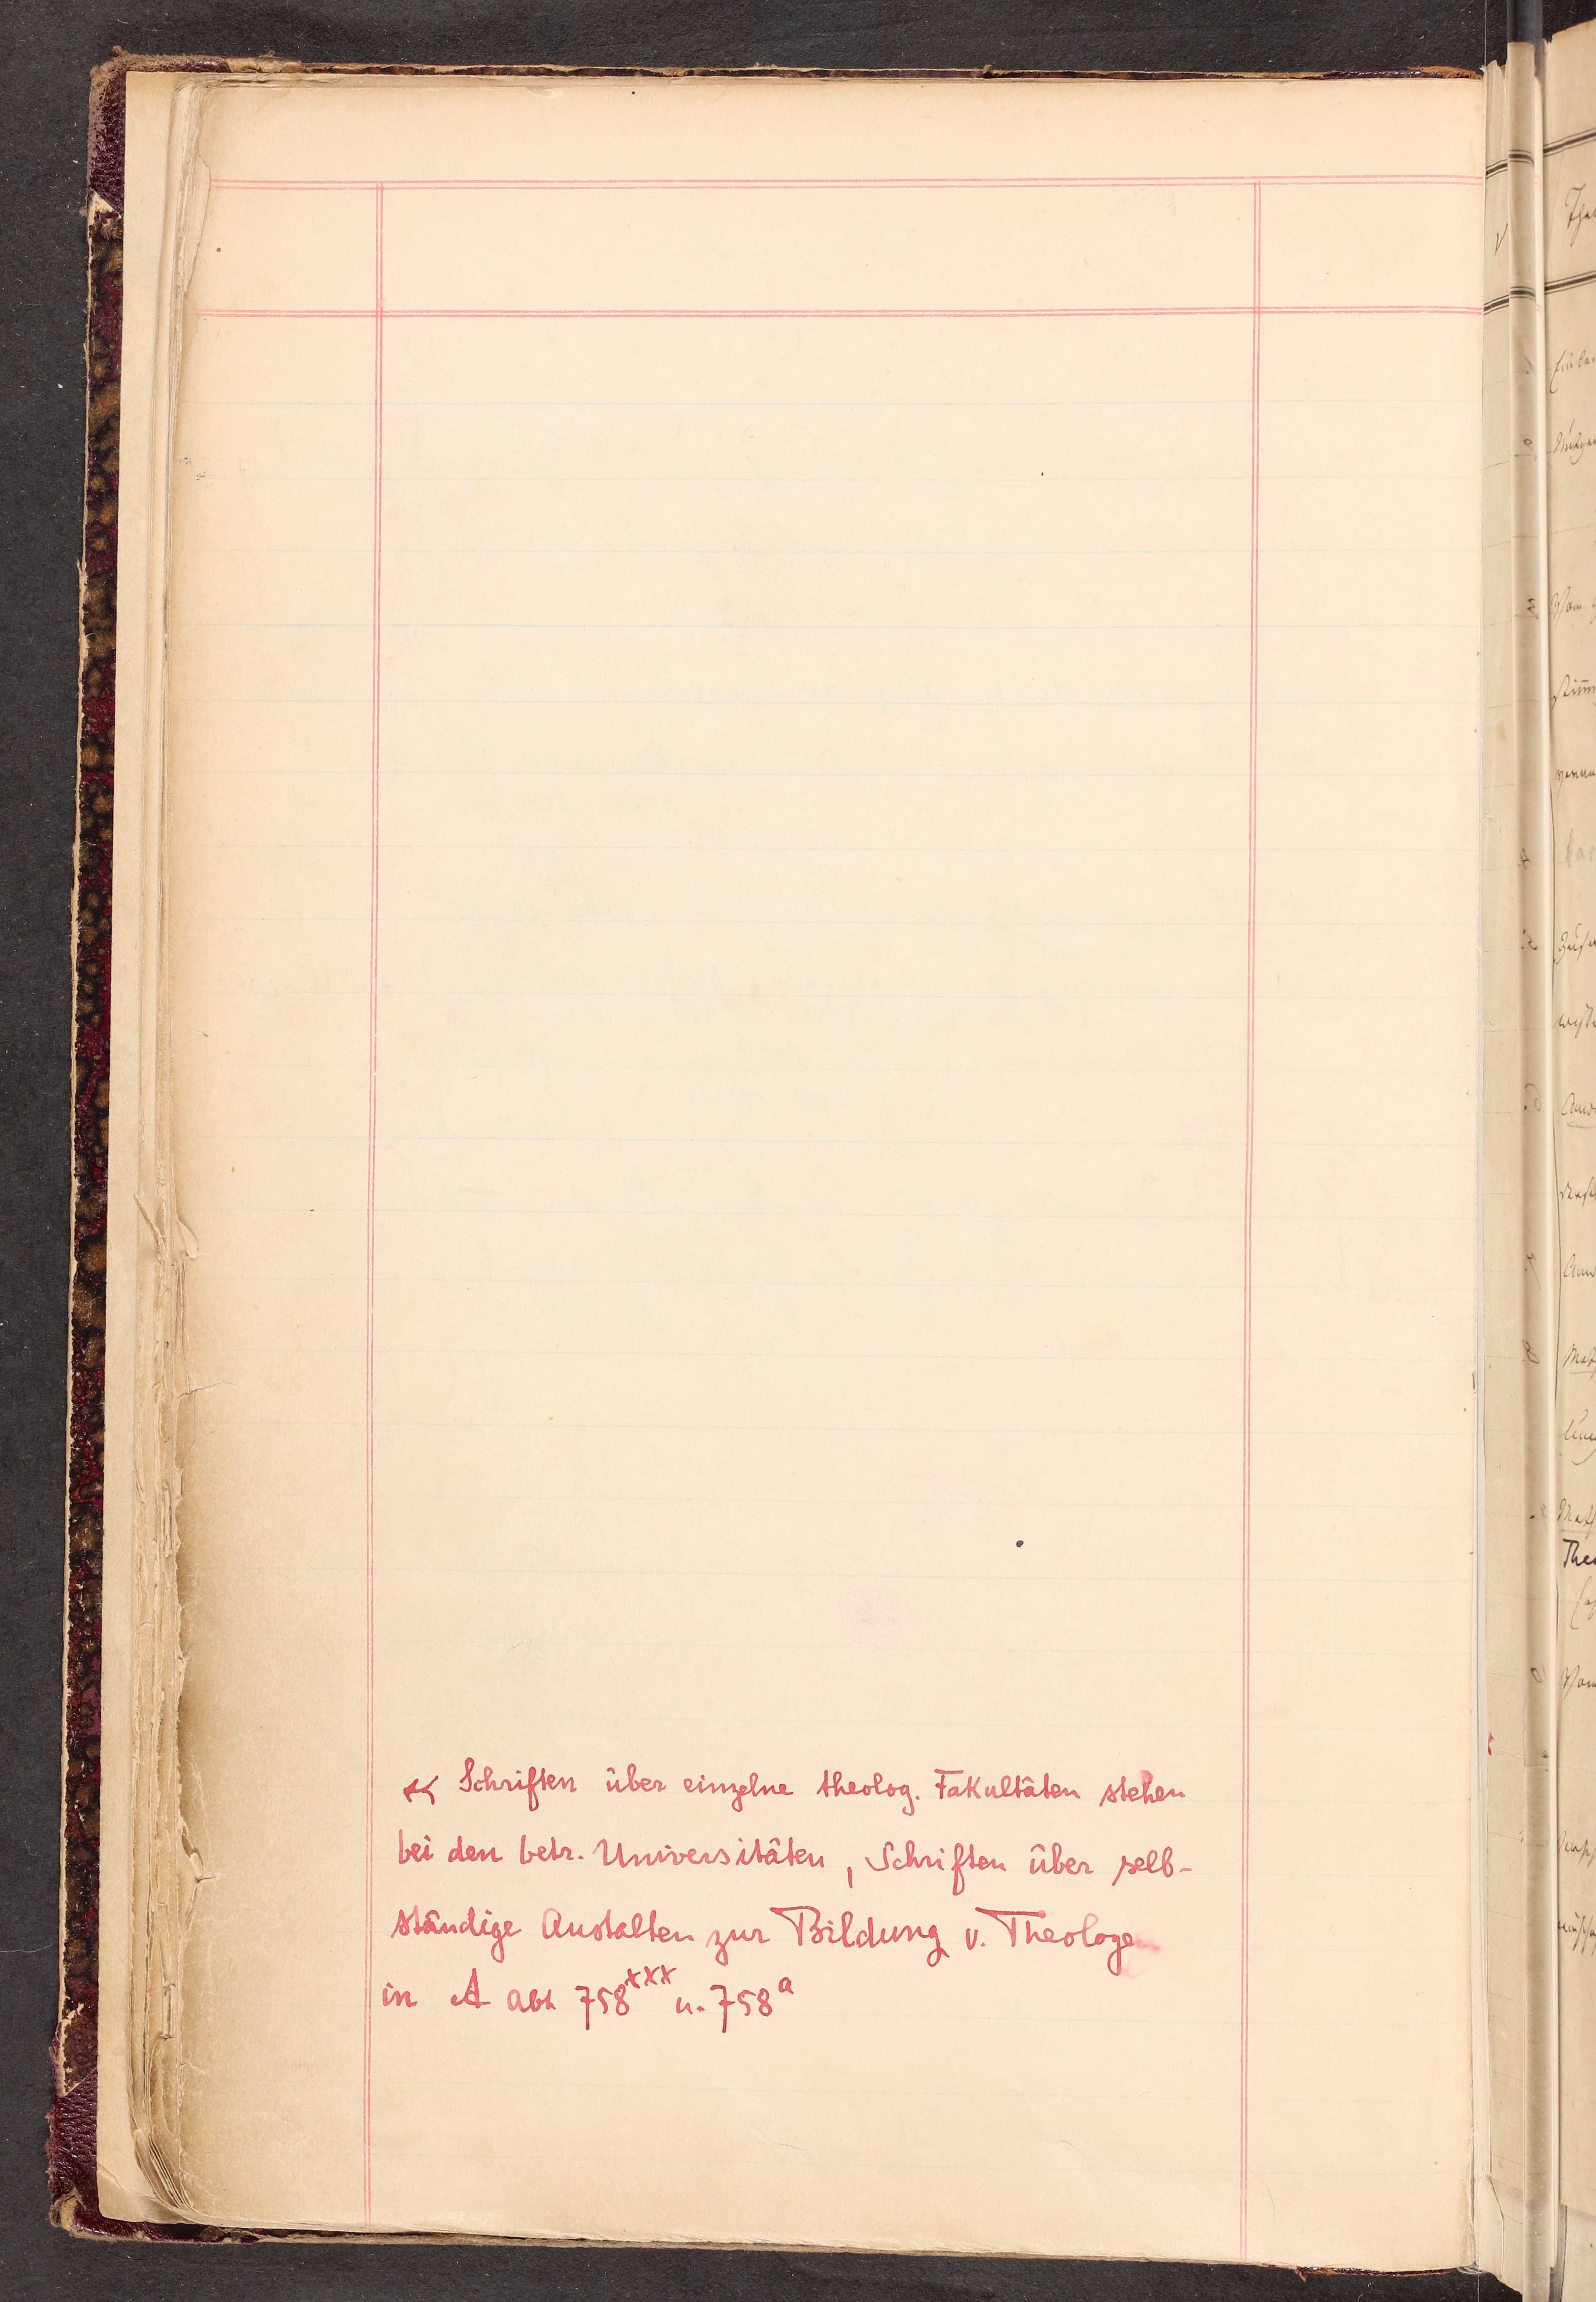 Schriften über einzelne theolog. Fakultäten stehen
bei den betr. Universitäten, Schriften über selb-
ständige Anstalten zur Bildung v. Theologen
in A abh 758xxx u. 758a